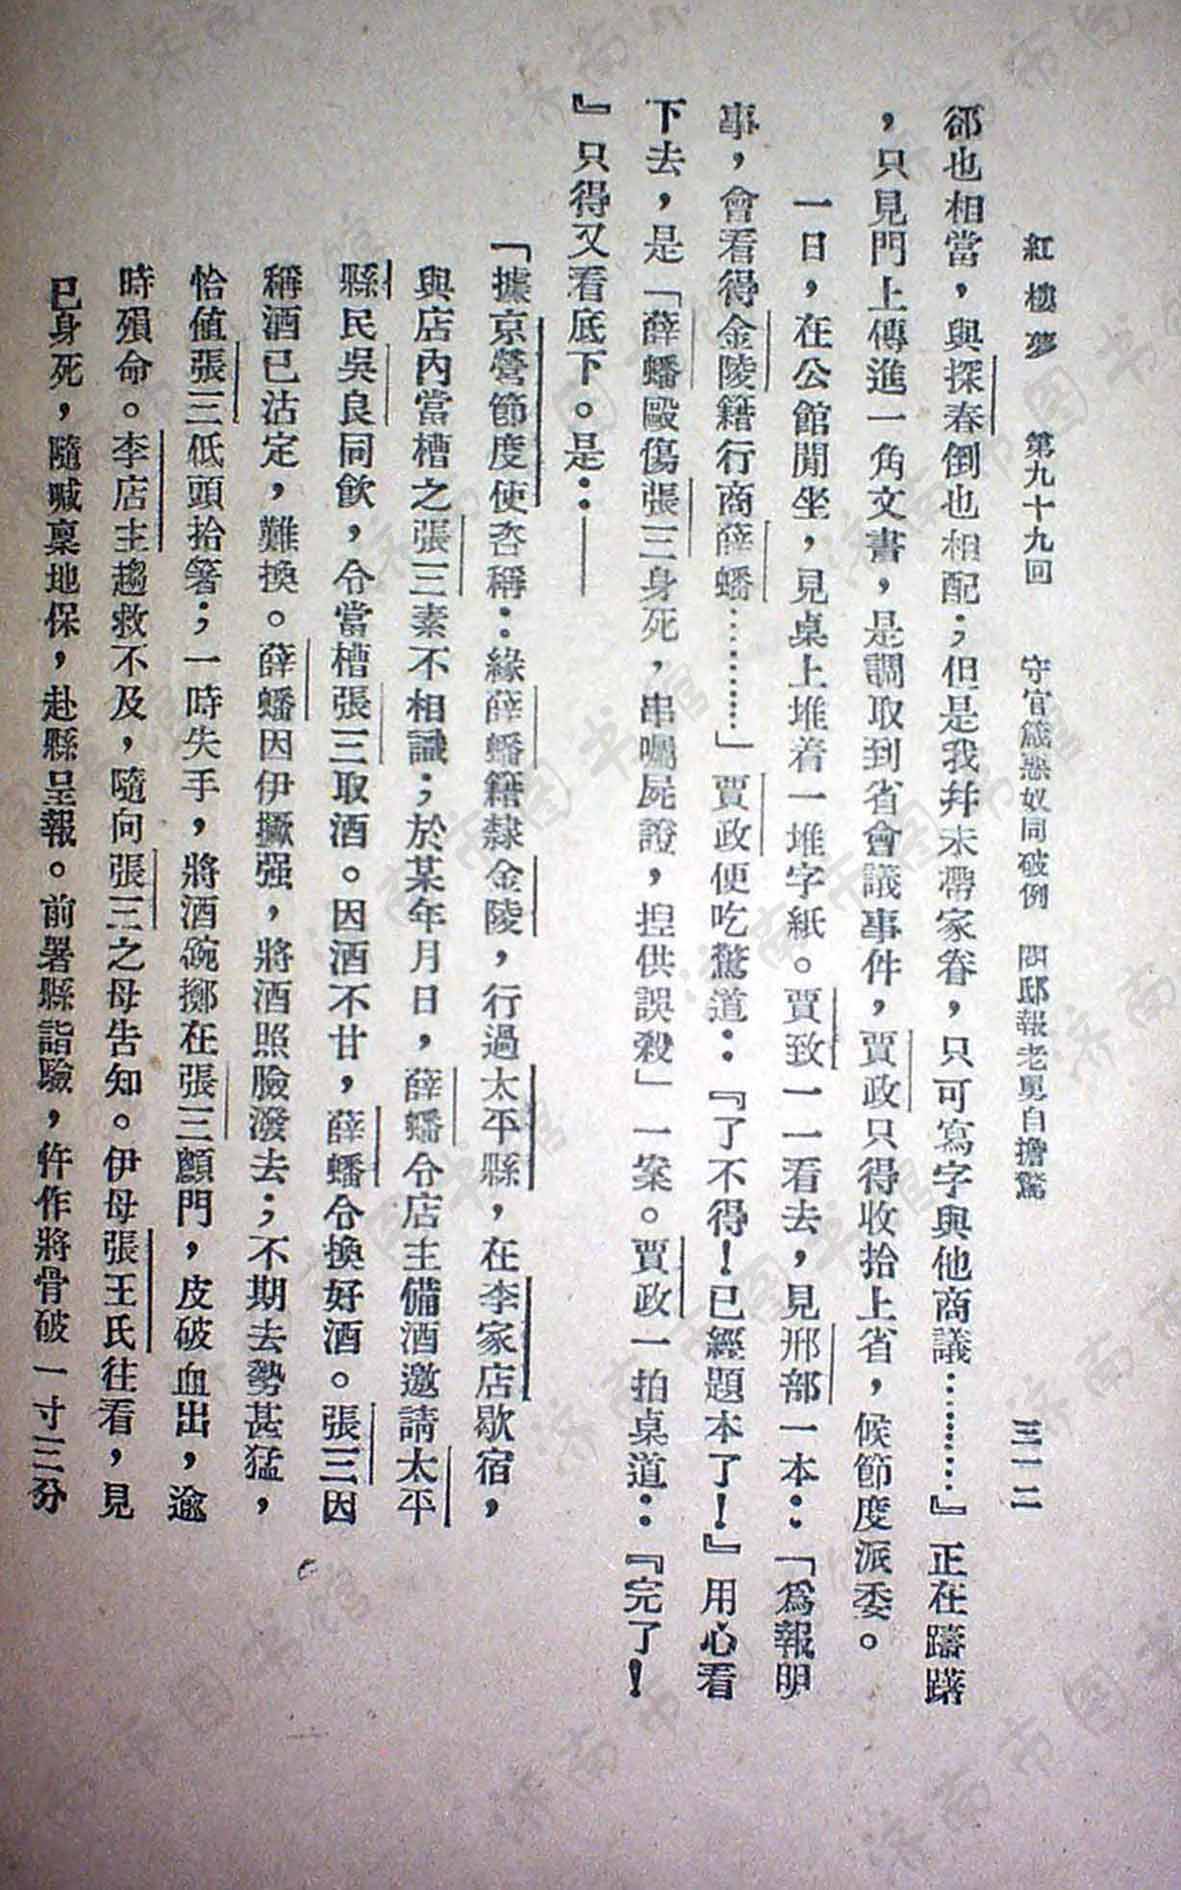 紅樓夢　第九十九回　守官箴惡奴同破例　閱邸報老舅自擔驚　三一二
郤也相當，與探春倒也相配；但是我幷未帶家眷，只可寫字與他商議…………』正在躊躇
，只見門上傳進一角文書，是調取到省會議事件，賈政只得收拾上省，候節度派委。
一日，在公館閒坐，見桌上堆着一堆字紙。賈政一一看去，見刑部一本：「爲報明
事，會看得金陵籍行商薛蟠…………」賈政便吃驚道：『了不得！已經題本了！』用心看
下去，是「薛蟠毆傷張三身死，串囑屍證，捏供誤殺」一案。賈政一拍桌道：『完了！
』只得又看底下。是：——
「據京營節度使咨稱：緣薛蟠籍隸金陵，行過太平縣，在李家店歇宿，
與店內當槽之張三素不相識；於某年月日，薛蟠令店主備酒邀請太平
縣民吳良同飲，令當槽張三取酒。因酒不甘，薛蟠令換好酒。張三因
稱酒已沽定，難換。薛蟠因伊撅强，將酒照臉潑去；不期去勢甚猛，
恰値張三低頭拾箸；一時失手，將酒碗擲在張三顖門，皮破血出，逾
時殞命。李店主趨救不及，隨向張三之母告知。伊母張王氏往看，見
已身死，隨喊稟地保，赴縣呈報。前署縣詣驗，仵作將骨破一寸三分